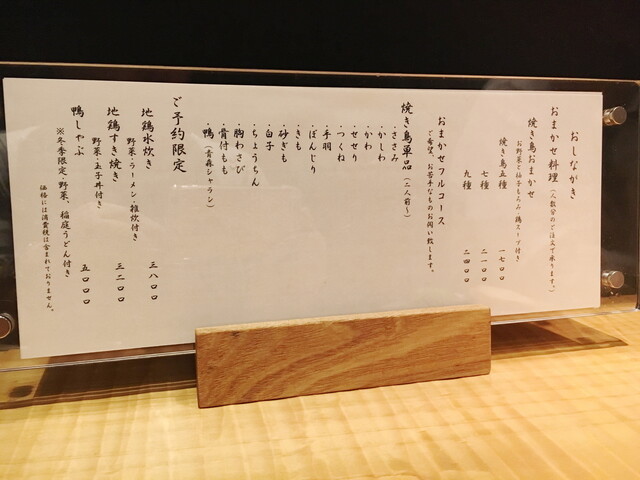 おしながき
おまかせ料理（人数分のご注文で承ります。）
焼き鳥おまかせ
お野菜と柚子もろみ 鶏スープ付き
焼き鳥五種 一七〇〇
七種 二一〇〇
九種 二四〇〇
おまかせフルコース
ご希望、お苦手なものお伺い致します。
焼き鳥単品（二人前〜）
・ささみ
・かしわ
・かわ
・せせり
・つくね
・手羽
・ぼんじり
・きも
・砂ぎも
・白子
・ちょうちん
・胸わさび
・骨付もも
・鴨（青森シャラン）
ご予約限定
地鶏水炊き 三八〇〇
野菜・ラーメン・雑炊付き
地鶏すき焼き 三二〇〇
野菜・玉子丼付き
鴨しゃぶ 五〇〇〇
※冬季限定・野菜、稲庭うどん付き
価格には消費税は含まれておりません。